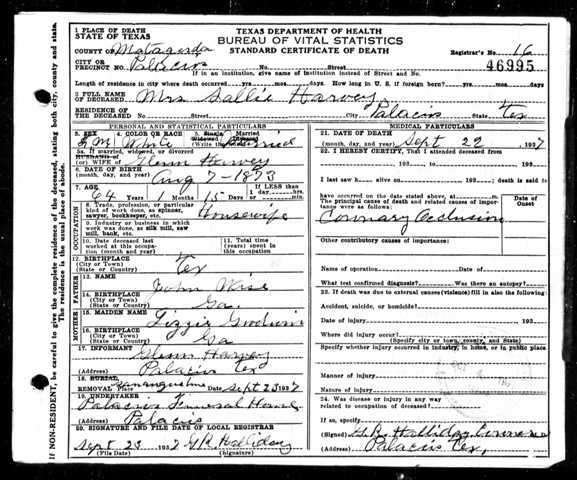 1 PLACE OF DEATH
STATE OF TEXAS
TEXAS DEPARTMENT OF HEALTH
BUREAU OF VITAL STATISTICS
STANDARD CERTIFICATE OF DEATH
COUNTY OF Matagorda
Registrar's No. 16
CITY OR
PRECINCT NO. Palacios No. Street 46995
If in an institution, give name of institution instead of Street and No.
Length of residence in city where death occurred yrs. mos. days. How long in U. S. if foreign born? yrs. mos. days
2 FULL NAME
OF DECEASED Mrs Sallie Harvey
RESIDENCE OF
THE DECEASED No. Street City Palacios State Tex
PERSONAL AND STATISTICAL PARTICULARS
3. SEX 4. COLOR OR RACE 5. Single Married
Widowed Divorced
White Married
5a. If married, widowed, or divorced
HUSBAND of
(or) WIFE of Glenn Harvey
6. DATE OF BIRTH
(month, day, and year) Aug 7-1873
7. AGE
64 Years 1 Months 15 Days
OCCUPATION
8. Trade, profession, or particular
kind of work done, as spinner,
sawyer, bookkeeper, etc. Housewife
9. Industry or business in which
work was done, as silk mill, saw
mill, bank, etc.
10. Date deceased last
worked at this occupa-
tion (month and year)
11. Total time
(years) spent in
this occupation
12. BIRTHPLACE
(City or Town)
(State or Country) Tex
FATHER
13. NAME John Wise
14. BIRTHPLACE
(City or Town)
(State or Country) Ga
MOTHER
15. MAIDEN NAME Lizzie
16. BIRTHPLACE
(City or Town)
(State or Country) Ga
17. INFORMANT Glenn Harvey
(Address) Palacios Tex
18. BURIAL,
REMOVAL Place Date Sept 23 1937
19. UNDERTAKER
Palacios Funeral Home
(Address) Palacios
20. SIGNATURE AND FILE DATE OF LOCAL REGISTRAR
Sept 23 1937 G R Halliday
(File Date) (Signature)
MEDICAL PARTICULARS
21. DATE OF DEATH
(month, day, and year) Sept 22 1937
22. I HEREBY CERTIFY, That I attended deceased from
193 to 193
I last saw h alive on 193 death is said to
have occurred on the date stated above, at m.
The principal cause of death and related causes of impor-
tance were as follows: Date of
Onset
Coronary Occlusion
Other contributory causes of importance:
Name of operation Date of
What test confirmed diagnosis? Was there an autopsy?
23. If death was due to external causes (violence) fill in also the following
Accident, suicide, or homicide?
Date of injury 193
Where did injury occur?
(Specify city or town, county, and State)
Specify whether injury occurred in industry, in home, or in public place
Manner of Injury
Nature of Injury
24. Was disease or injury in any way
related to occupation of deceased?
If so, specify
(Signed) G R Halliday Coroner
(Address) Palacios Tex.
If NON-RESIDENT, be careful to give the complete residence of the deceased, stating both city, county and state.
The residence is the usual place of abode.